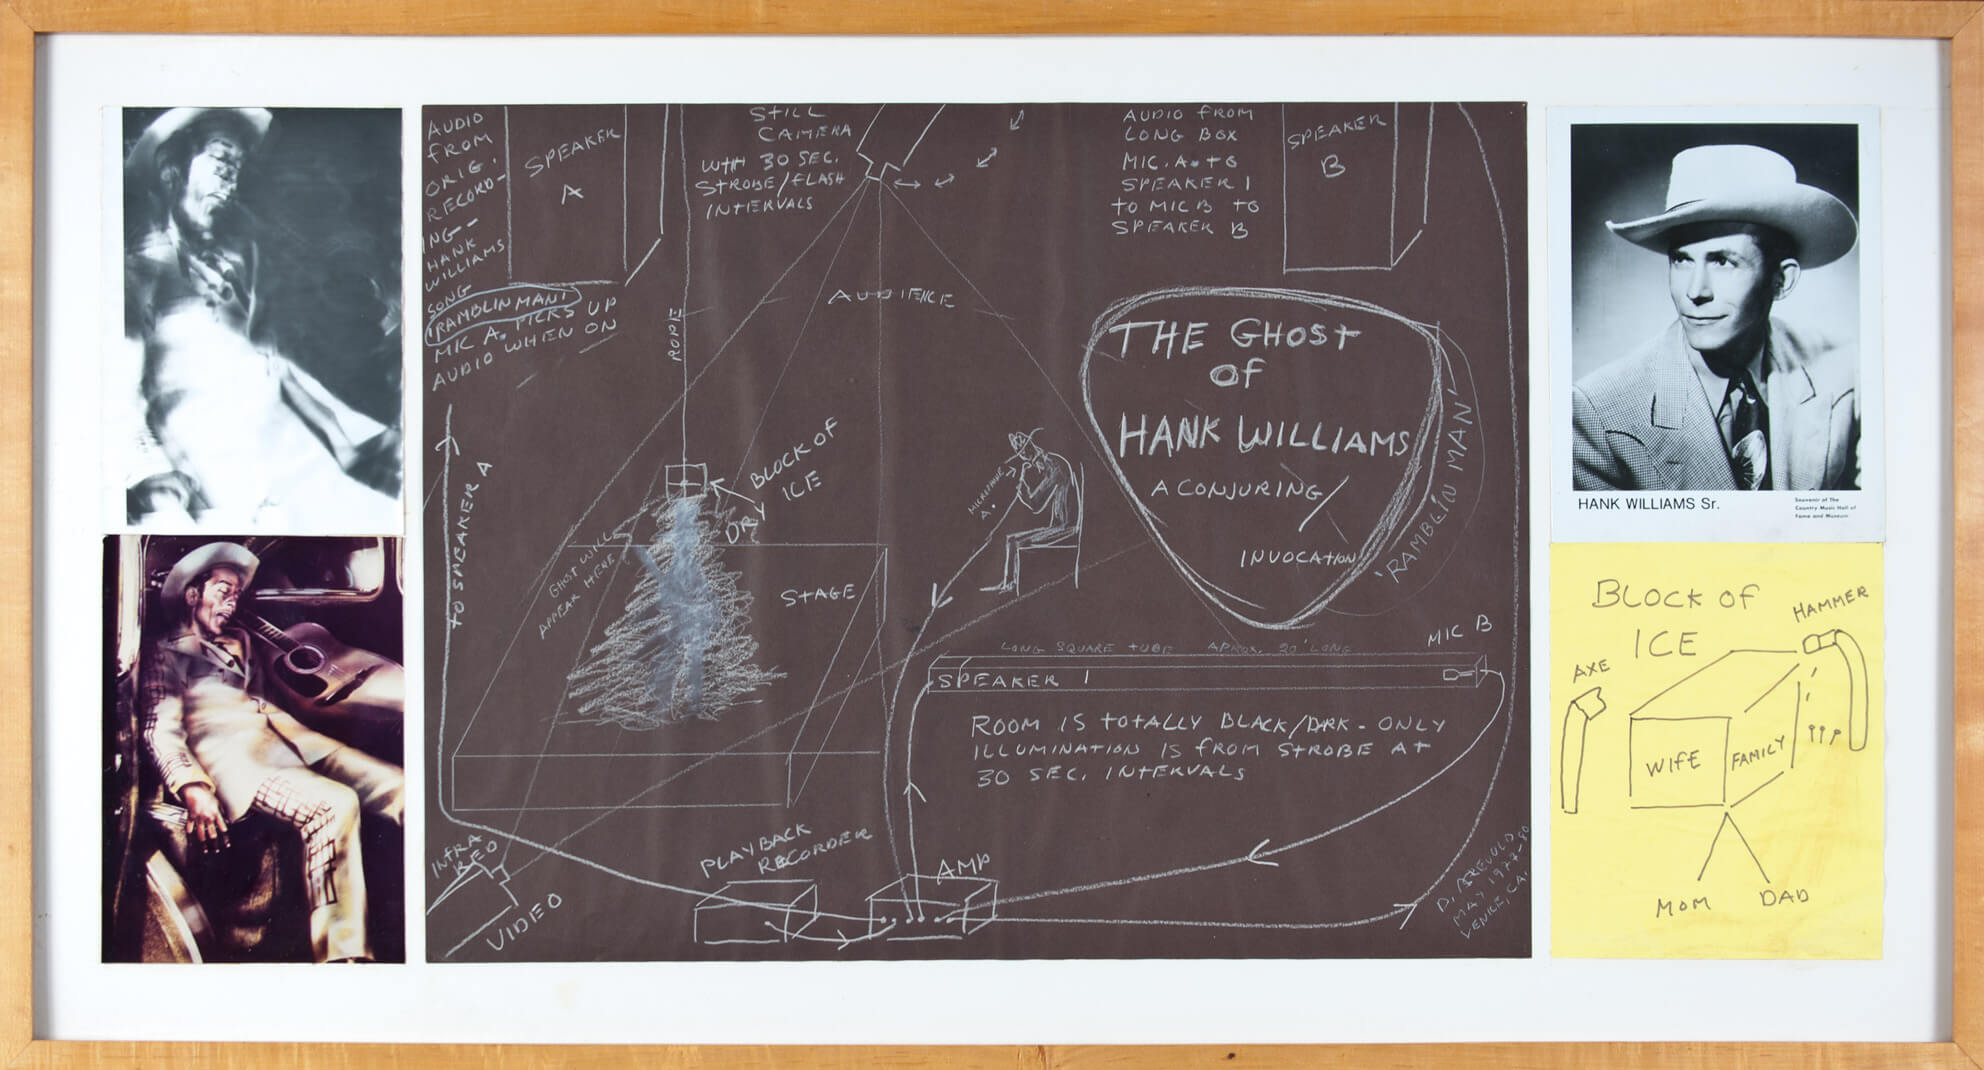 AUDIO
FROM
ORIG.
RECORD-
ING--
HANK
WILLIAMS
SONG
'RAMBLIN MAN'
MIC A. PICKS UP
AUDIO WHEN ON
SPEAKER
A
STILL
CAMERA
WITH 30 SEC.
STROBE/FLASH
INTERVALS
AUDIO FROM
LONG BOX
MIC. A. TO
SPEAKER 1
TO MIC B TO
SPEAKER B
SPEAKER
B
AUDIENCE
ROPE
THE GHOST
OF
HANK WILLIAMS
A CONJURING/
INVOCATION
'RAMBLIN MAN'
BLOCK OF
DRY ICE
MICROPHONE
A.
TO SPEAKER A
GHOST WILL
APPEAR HERE
STAGE
LONG SQUARE TUBE APROX. 20' LONG
MIC B
SPEAKER 1
ROOM IS TOTALLY BLACK/DARK - ONLY
ILLUMINATION IS FROM STROBE AT
30 SEC. INTERVALS
INFRA
RED
VIDEO
PLAYBACK
RECORDER
AMP
MAY 1977-80
VENICE, CA.
HANK WILLIAMS Sr.
Souvenir of The
Country Music Hall of
Fame and Museum
BLOCK OF
ICE
HAMMER
AXE
WIFE
FAMILY
MOM
DAD